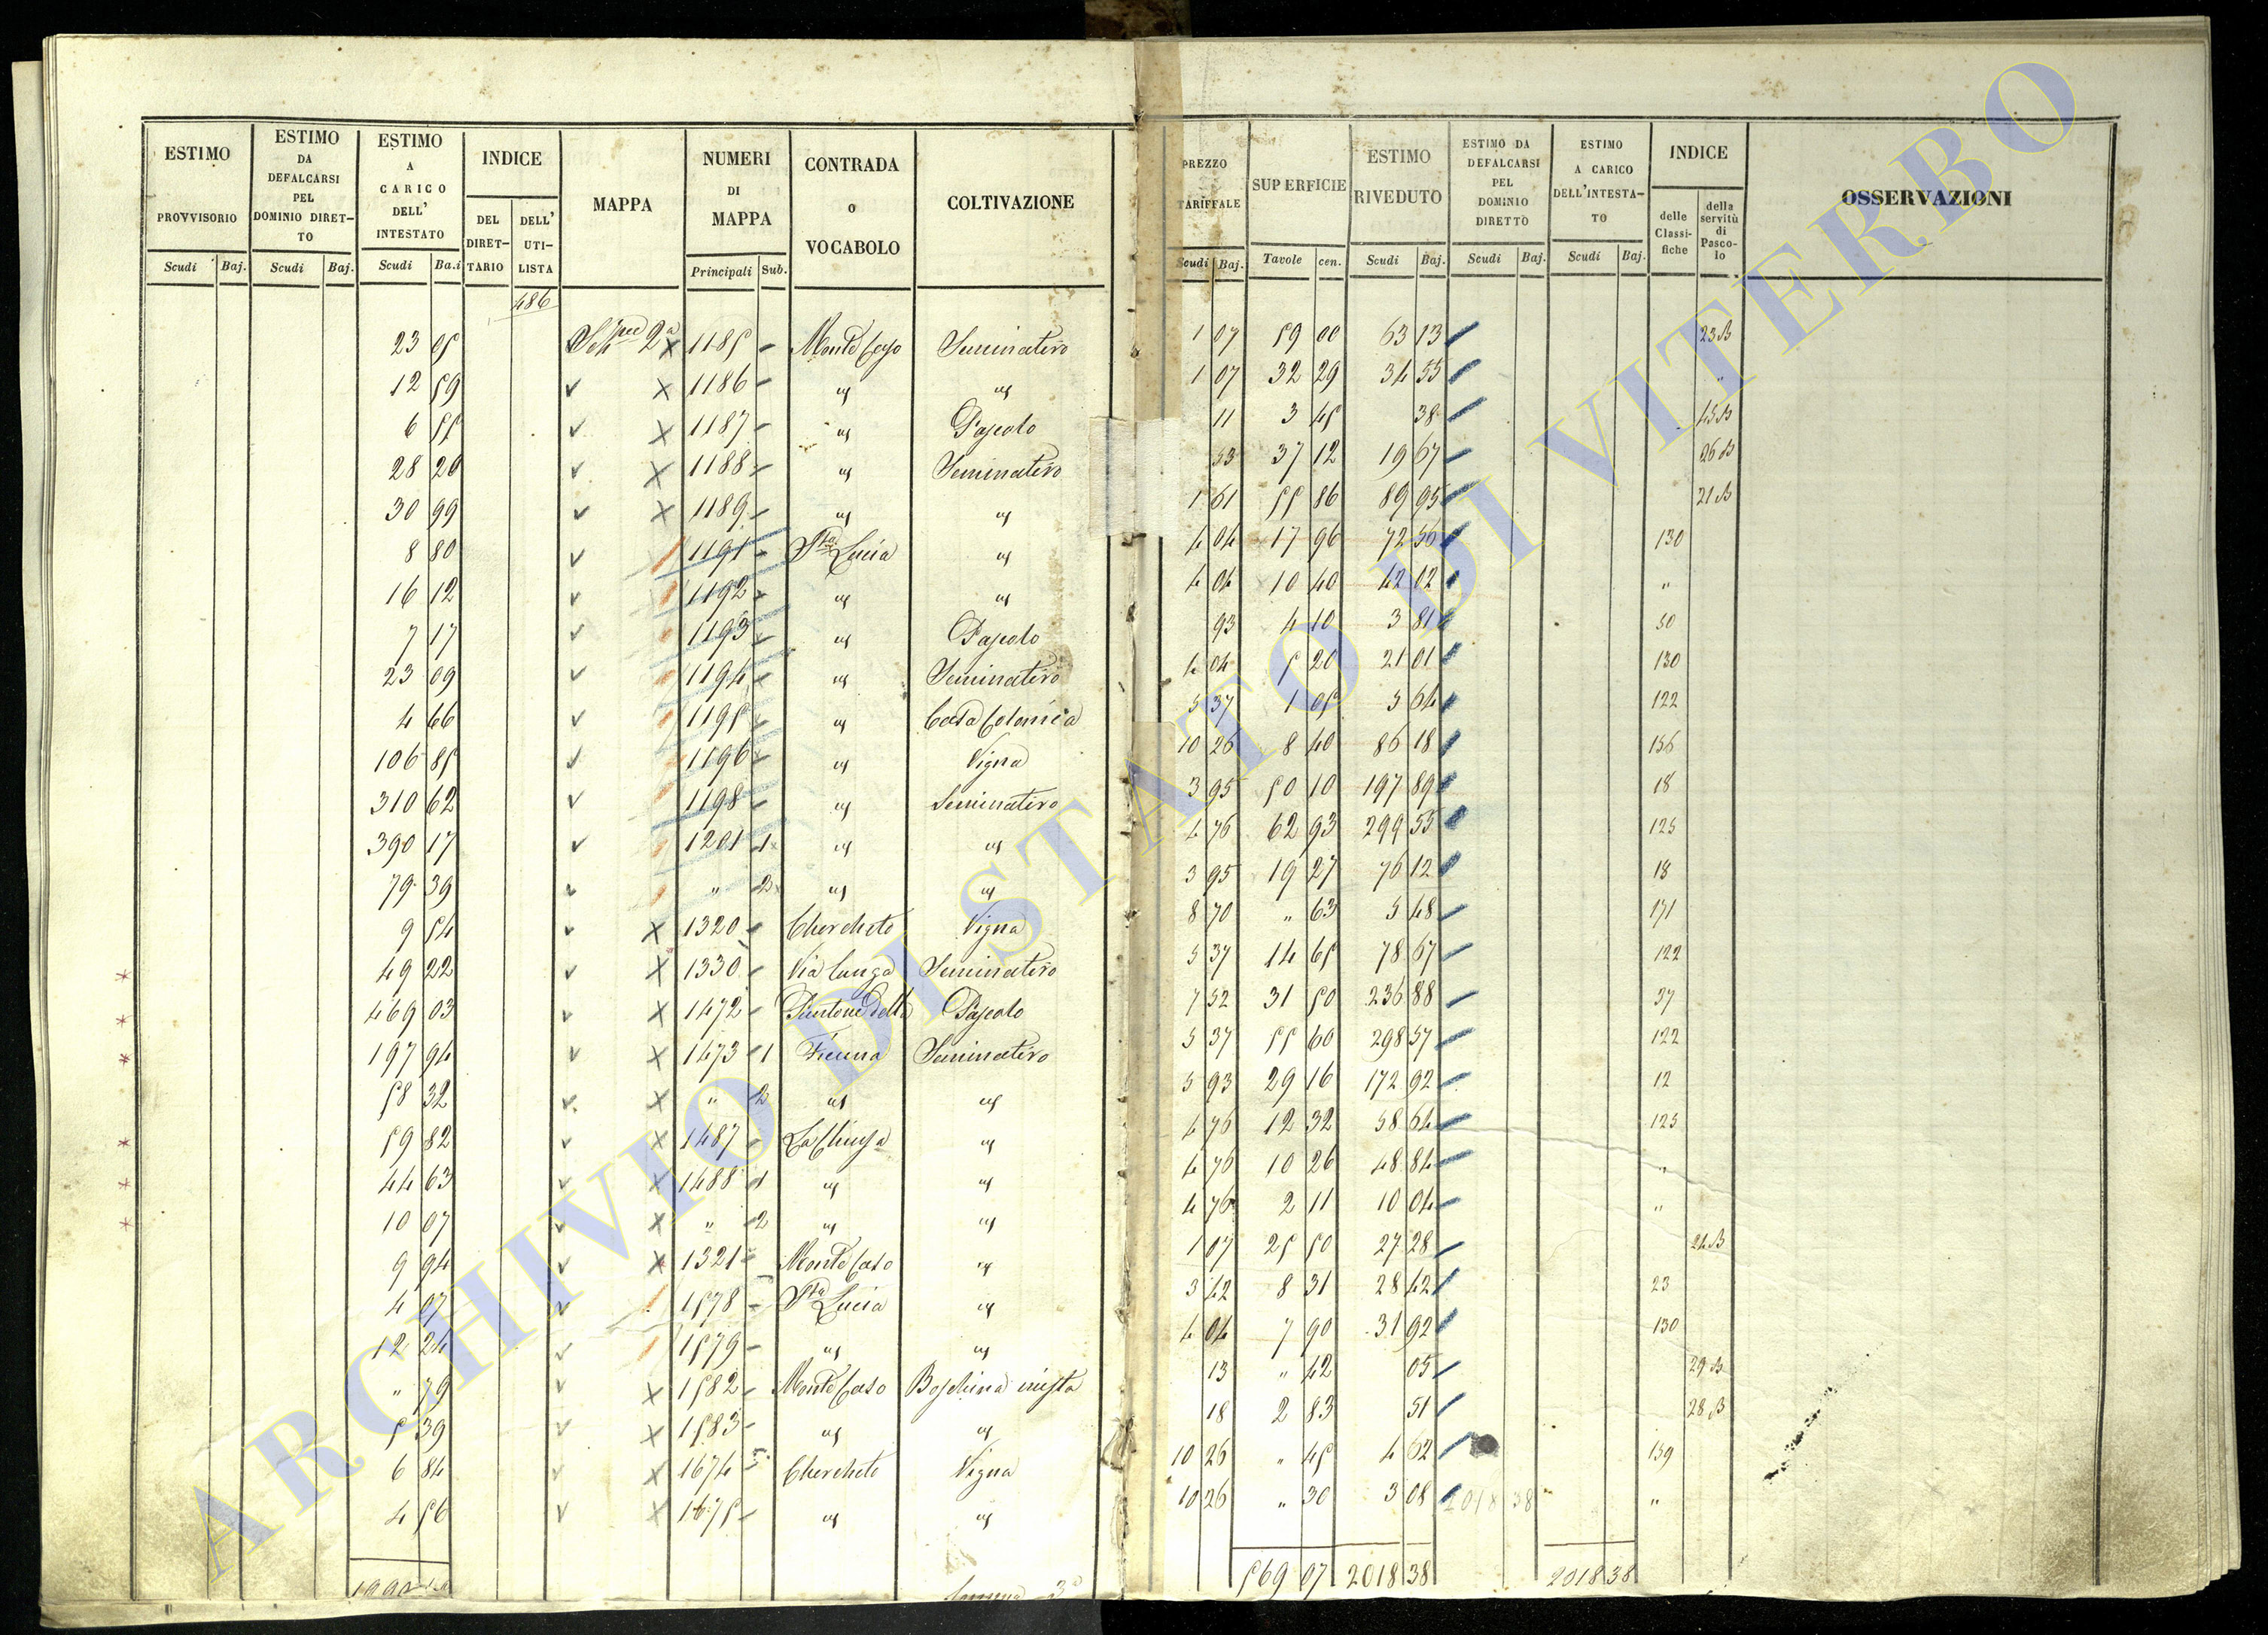 ESTIMO PROVVISORIO Scudi Baj.
ESTIMO DA DEFALCARSI PEL DOMINIO DIRET-TO Scudi Baj.
ESTIMO A CARICO DELL' INTESTATO Scudi Ba.i
INDICE DEL DIRET-TARIO DELL' UTI-LISTA
MAPPA
NUMERI DI MAPPA Principali Sub.
CONTRADA o VOCABOLO
COLTIVAZIONE
PREZZO TARIFFALE Scudi Baj.
SUPERFICIE Tavole cen.
ESTIMO RIVEDUTO Scudi Baj.
ESTIMO DA DEFALCARSI PEL DOMINIO DIRETTO Scudi Baj.
ESTIMO A CARICO DELL'INTESTA-TO Scudi Baj.
INDICE delle Classi-fiche della servitù di Pasco-lo
OSSERVAZIONI
486
23 05 2a 1185 Seminativo 1 07 59 00 63 13 23 B
12 59 1186 " " 1 07 32 29 34 55 "
6 55 1187 " Pascolo 11 3 45 38 45 B
28 20 1188 " Seminativo 53 37 12 19 67 26 B
30 99 1189 " " 1 61 55 86 89 95 21 B
8 80 1191 Sta Lucia " 4 04 17 96 72 56 130
16 12 1192 " " 4 04 10 40 42 02 "
7 17 1193 " Pascolo 93 4 10 3 81 50
23 09 1194 " Seminativo 4 04 5 20 21 01 130
4 66 1195 " Casa Colonica 5 37 1 05 5 64 122
106 85 1196 " Vigna 10 26 8 40 86 18 156
310 62 1198 " Seminativo 3 95 50 10 197 89 18
390 17 1201 1 " " 4 76 62 93 299 55 125
79 39 " 2 " " 3 95 19 27 76 12 18
9 54 1320 Chercheto Vigna 8 70 " 63 5 48 171
49 22 1330 Via lunga Seminativo 5 37 14 65 78 67 122
469 03 1472 Puntone della Pascolo 7 52 31 50 236 88 37
197 94 1473 1 Fienna Seminativo 5 37 55 60 298 57 122
58 32 " 2 " " 5 93 29 16 172 92 12
59 82 1487 La Chiusa " 4 76 12 32 58 64 125
44 63 1488 1 " " 4 76 10 26 48 84 "
10 07 " 2 " " 4 76 2 11 10 04 "
9 94 1321 Monte Caso " 1 07 25 50 27 28 24 B
4 07 1578 Sta Lucia " 3 42 8 31 28 42 23
12 24 1579 " " 4 04 7 90 31 92 130
" 79 1582 Monte Caso Boschina mista 13 " 42 05 29 B
5 39 1583 " " 18 2 83 51 28 B
6 84 1674 Chercheto Vigna 10 26 " 45 4 62 159
4 56 1675 " " 10 26 " 30 3 08 2018 38 "
569 07 2018 38 2018 38
ARCHIVIO DI STATO DI VITERBO